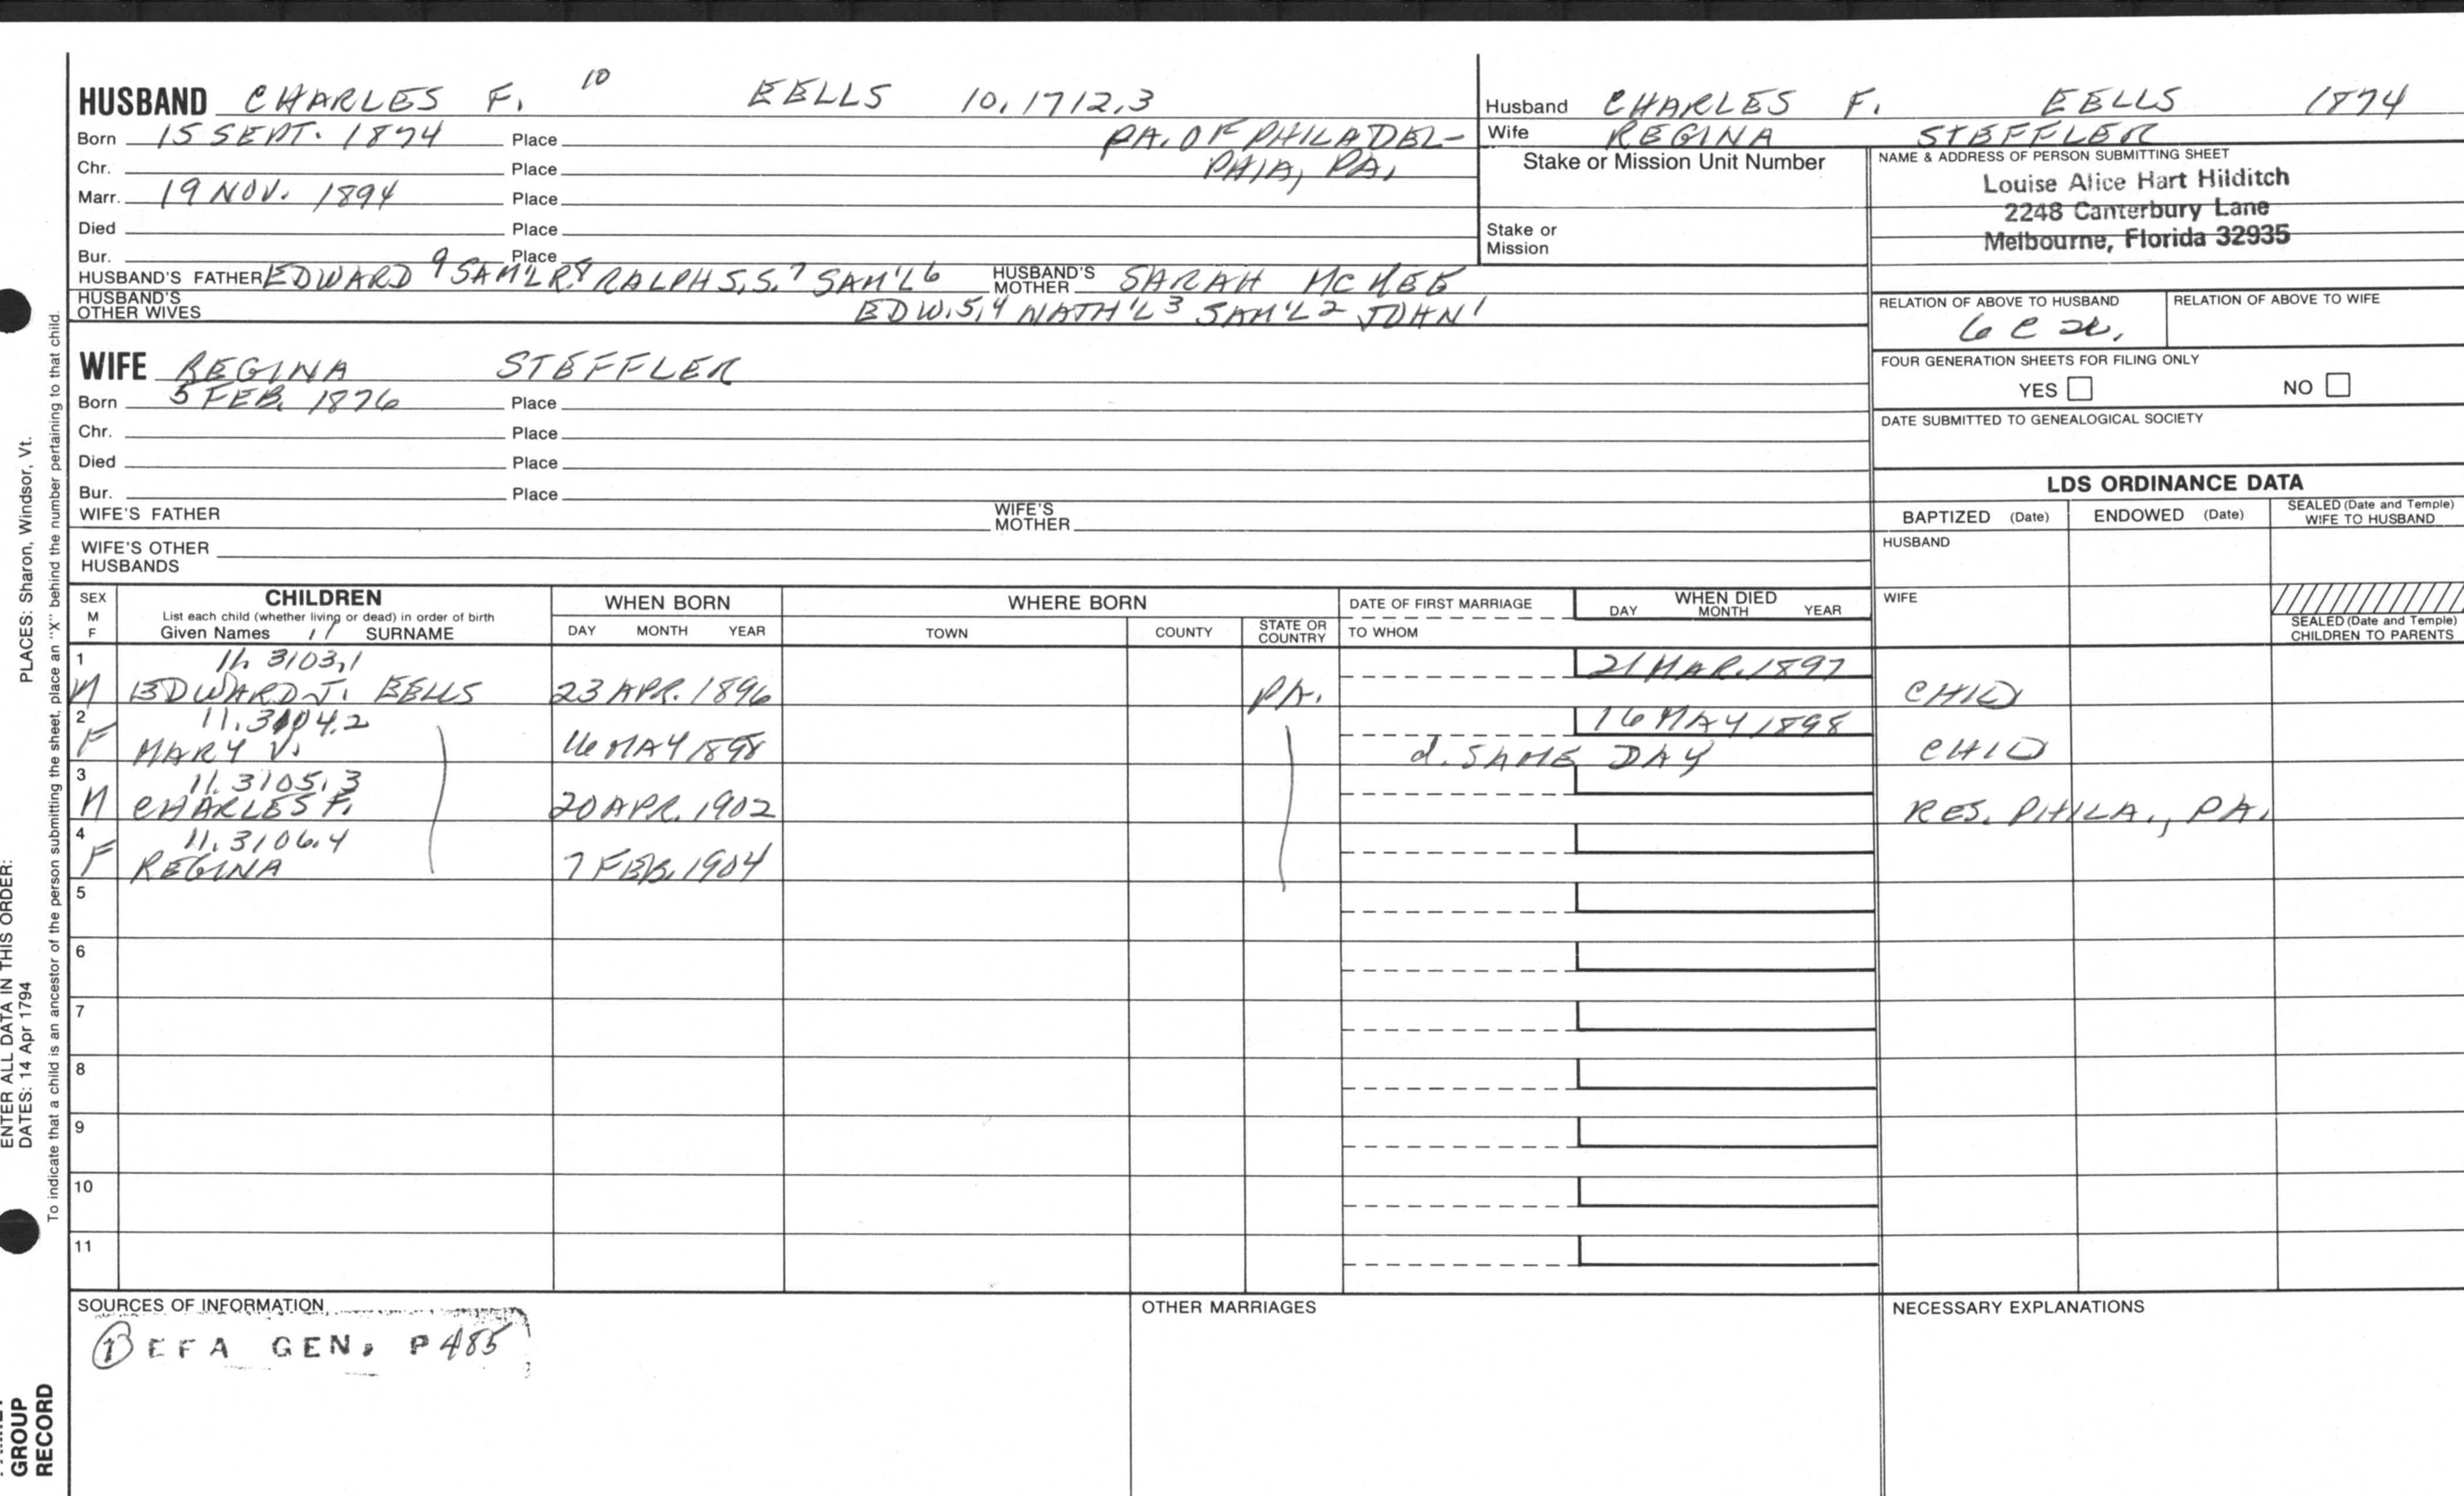 HUSBAND CHARLES F. 10 EELLS 10.1712.3
Born 15 SEPT. 1874 Place PA. OF PHILADEL-
Chr. Place PHIA, PA.
Marr. 19 NOV. 1894 Place
Died Place
Bur. Place
HUSBAND'S FATHER EDWARD 9 SAM'L R.8 RALPH S.S.7 SAM'L 6 HUSBAND'S MOTHER SARAH MCKEE
HUSBAND'S OTHER WIVES EDW.5,4 NATH'L 3 SAM'L 2 JOHN 1
WIFE REGINA STEFFLER
Born 5 FEB. 1876 Place
Chr. Place
Died Place
Bur. Place
WIFE'S FATHER WIFE'S MOTHER
WIFE'S OTHER HUSBANDS
Husband CHARLES F. EELLS 1874
Wife REGINA STEFFLER
Stake or Mission Unit Number
Stake or Mission
NAME & ADDRESS OF PERSON SUBMITTING SHEET
Louise Alice Hart Hilditch
2248 Canterbury Lane
Melbourne, Florida 32935
RELATION OF ABOVE TO HUSBAND RELATION OF ABOVE TO WIFE
6 C
FOUR GENERATION SHEETS FOR FILING ONLY
YES NO
DATE SUBMITTED TO GENEALOGICAL SOCIETY
LDS ORDINANCE DATA
BAPTIZED (Date) ENDOWED (Date) SEALED (Date and Temple) WIFE TO HUSBAND
HUSBAND
WIFE
SEALED (Date and Temple) CHILDREN TO PARENTS
SEX M F
CHILDREN
List each child (whether living or dead) in order of birth
Given Names 11 SURNAME
WHEN BORN
DAY MONTH YEAR
WHERE BORN
TOWN COUNTY STATE OR COUNTRY
DATE OF FIRST MARRIAGE
TO WHOM
WHEN DIED
DAY MONTH YEAR
1 11.3103.1 21 MAR. 1897
M EDWARD J. EELLS 23 APR. 1896 PA. CHILD
2 11.3104.2 16 MAY 1898
F MARY V. 16 MAY 1898 d. SAME DAY CHILD
3 11.3105.3
M CHARLES F. 20 APR. 1902 RES. PHILA., PA.
4 11.3106.4
F REGINA 7 FEB. 1904
5
6
7
8
9
10
11
SOURCES OF INFORMATION
1 EFA GEN. P 485
OTHER MARRIAGES
NECESSARY EXPLANATIONS
ENTER ALL DATA IN THIS ORDER:
DATES: 14 Apr 1794 PLACES: Sharon, Windsor, Vt.
To indicate that a child is an ancestor of the person submitting the sheet, place an "X" behind the number pertaining to that child.
GROUP
RECORD